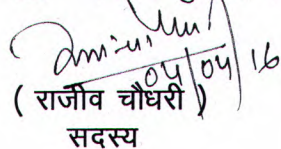 04/04/16
( राजीव चौधरी )
सदस्य